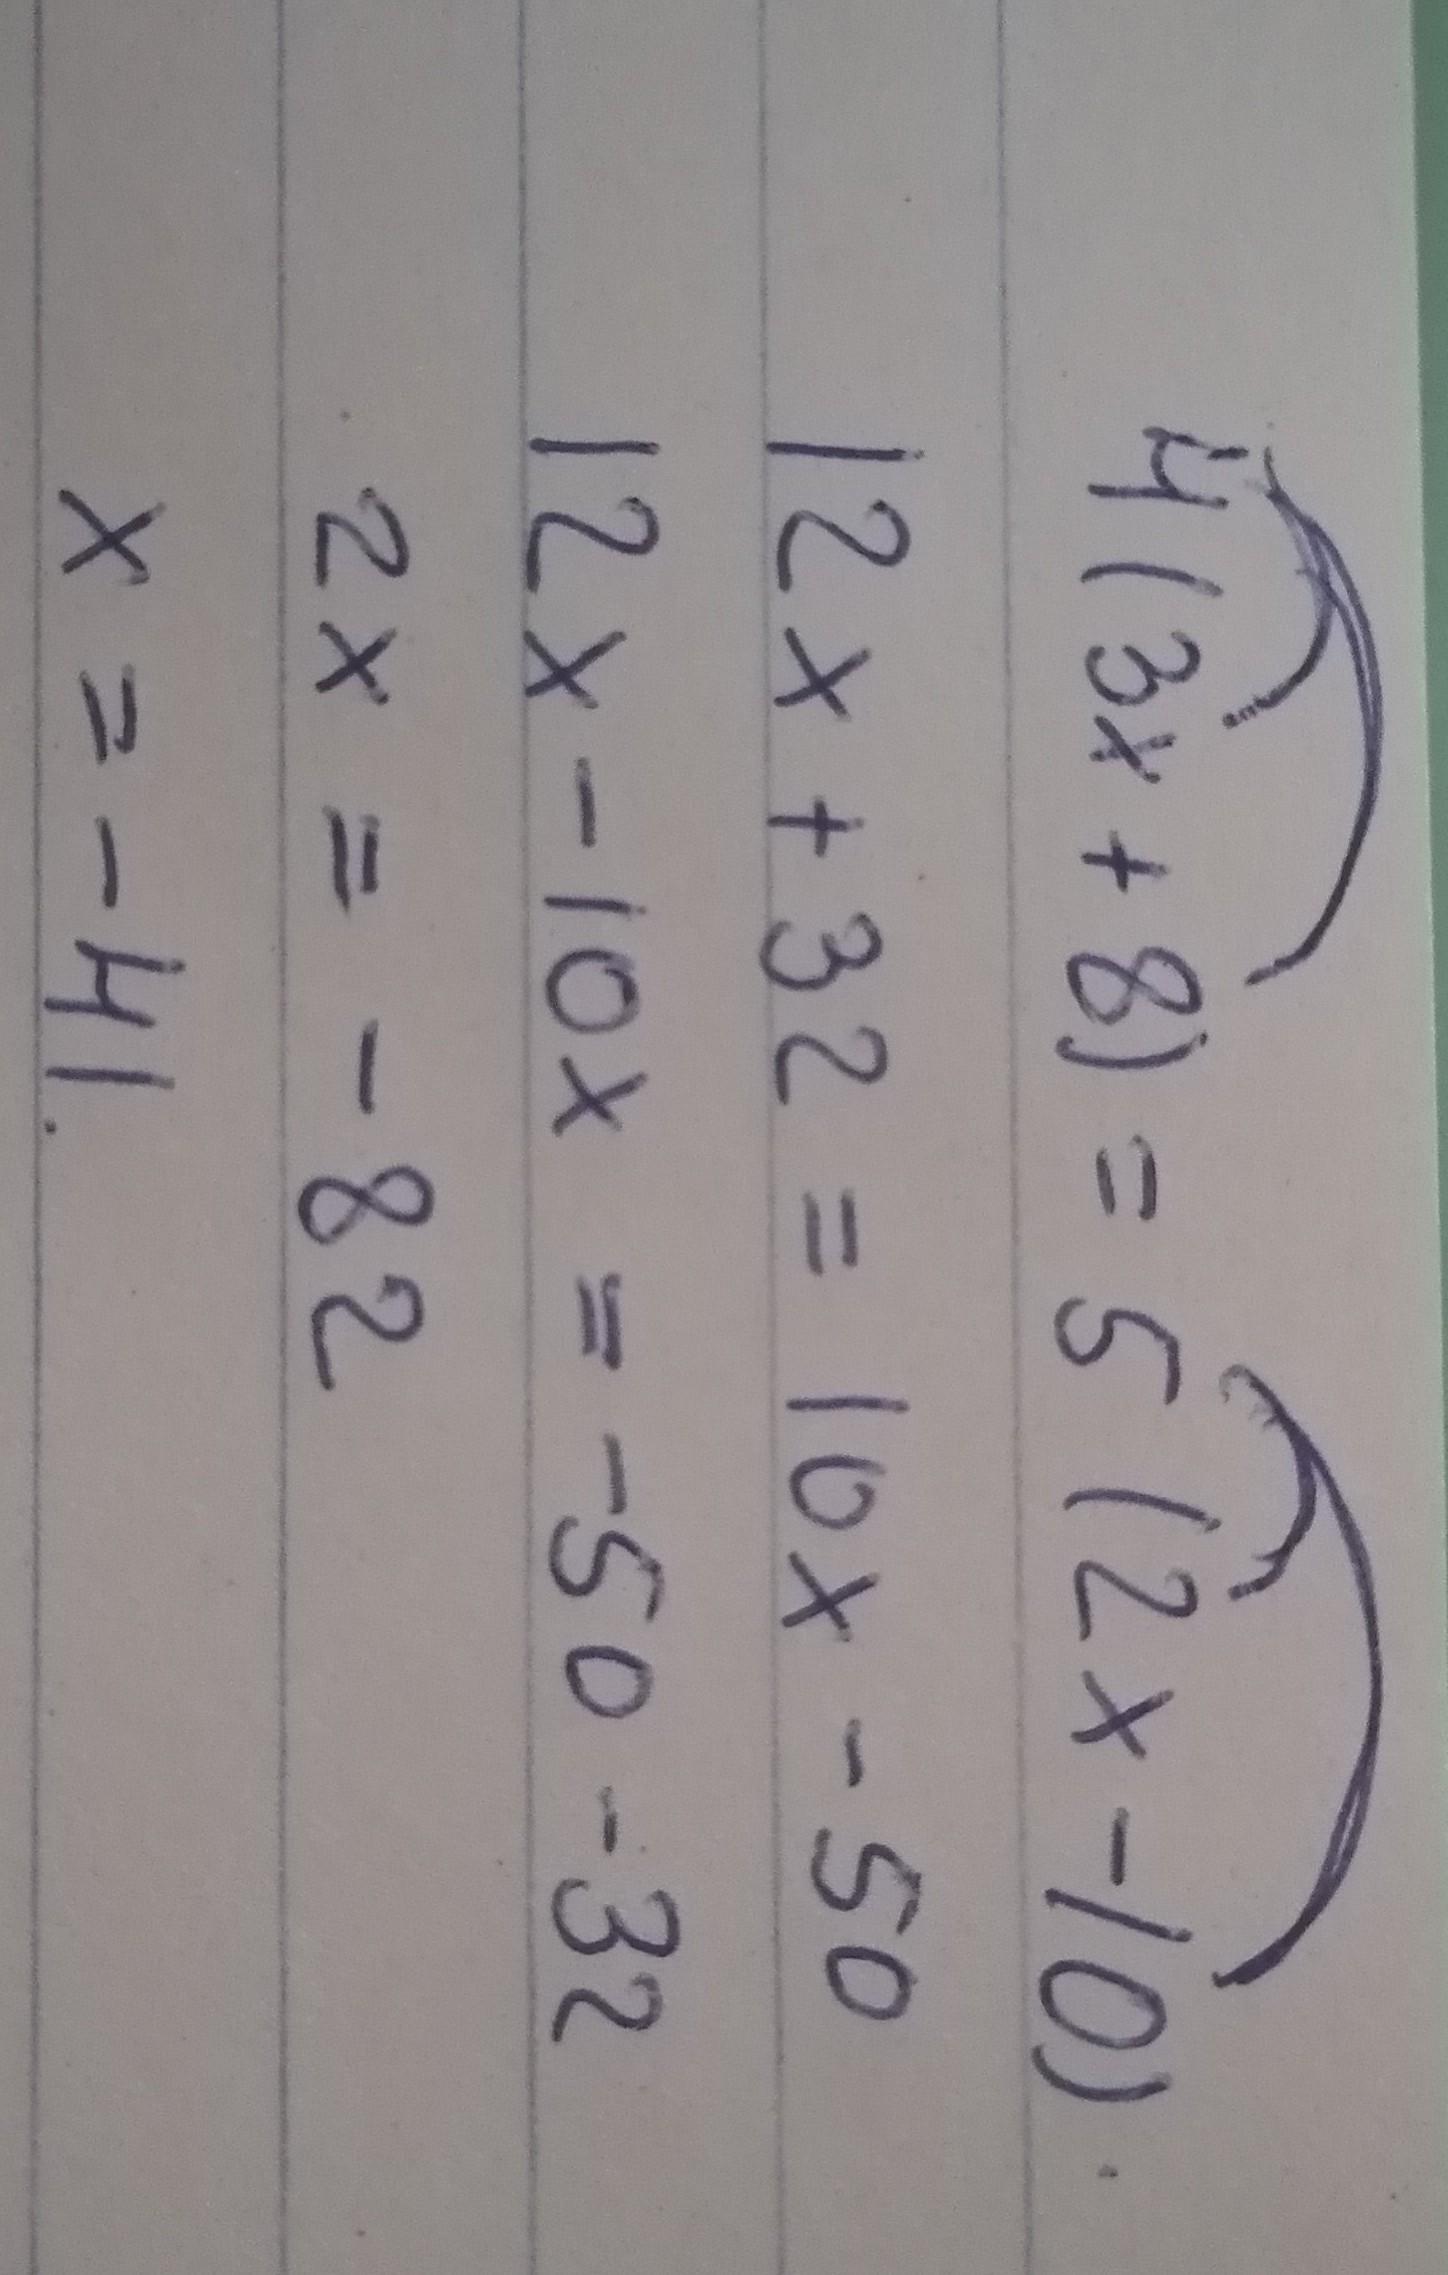 4(3x + 8) = 5(2x - 10).
12x + 32 = 10x - 50
12x - 10x = - 50 - 32
2x = - 82
x = - 41.